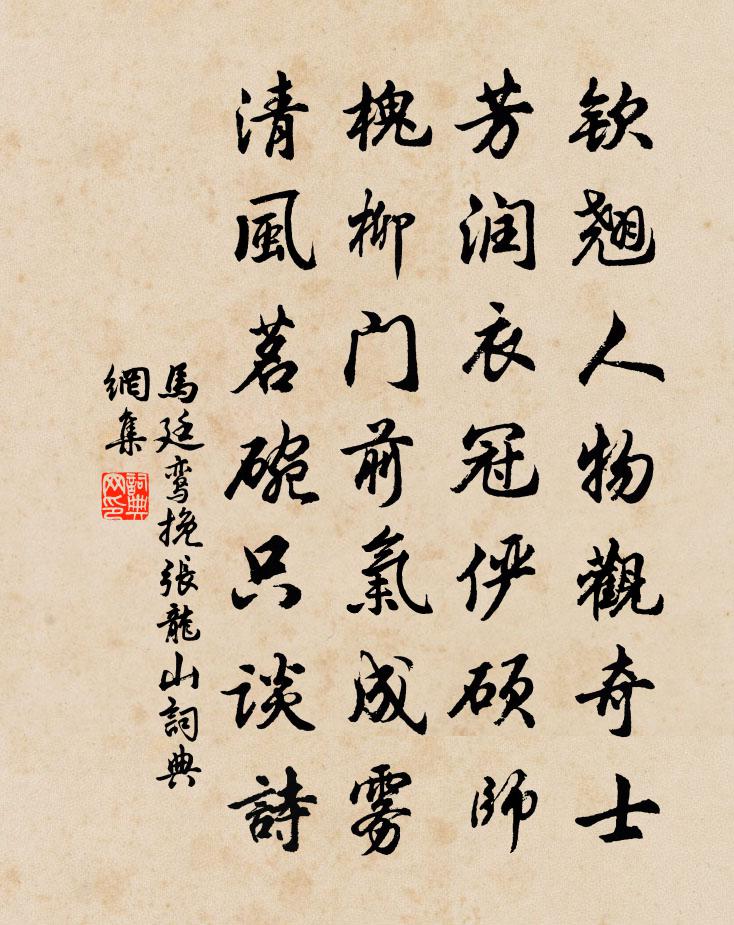 钦翘人物觀奇士
芳润衣冠俨硕師
槐柳门前氣成雾
清風茗碗只谈詩
馬廷鸾挽張龍山詞典
網集
詞典
网印